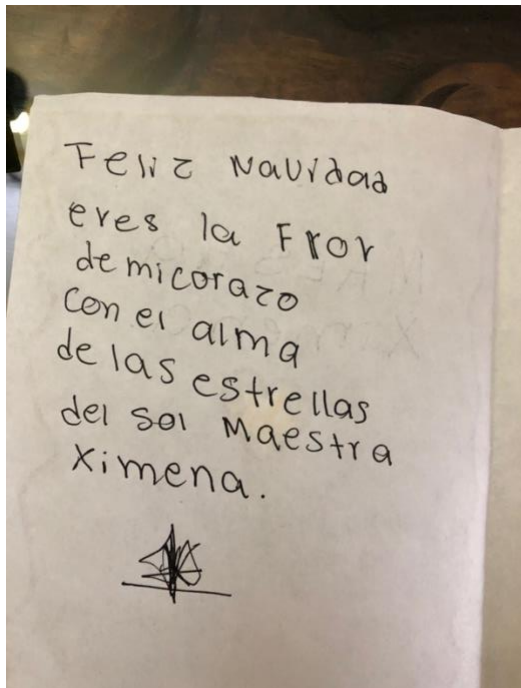 Feliz Navidad
eres la Fror
de mi corazo
con el alma
de las estrellas
del sol Maestra
Ximena.